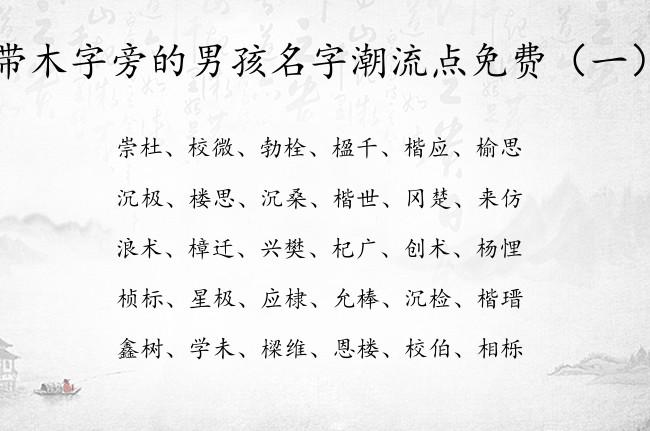 带木字旁的男孩名字潮流点免费（一）
崇杜、校微、勃栓、楹千、楷应、榆思
沉极、楼思、沉桑、楷世、冈楚、来仿
浪术、樟迁、兴樊、杞广、创术、杨悝
桢标、星极、应棣、允棒、沉检、楷瑨
鑫树、学未、樑维、恩楼、校伯、相栎